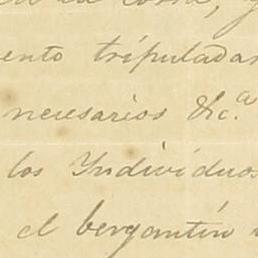 la costa, y
ento tripuladas
necesarios &c.ª
los Yndividuos
el bergantín